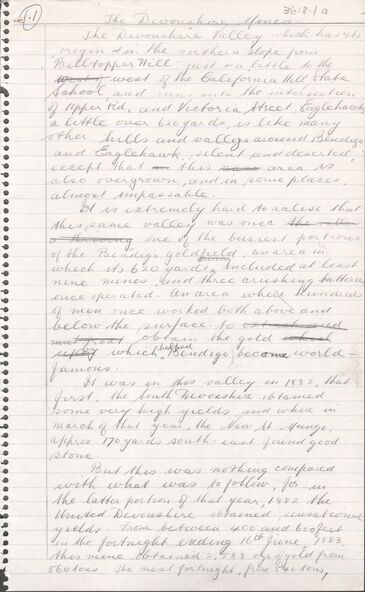 .1
3618.1a
The Devonshire Mines
The Devonshire Valley which has its
origin in the northern slope from
"Belltopper Hill" just a little to the
west of the California Hill State
School and runs into the intersection
of Upper Rd, and Victoria Street Eaglehawk,
a little over 620 yards, is like many
other hills and valleys around Bendigo
and Eaglehawk, silent and deserted,
except that this area is
also overgrown, and in some places,
almost impassable.
It is extremely hard to realise that
this same valley was once
one of the busiest portions
of the Bendigo goldfield, an area in
which its 620 yards, included at least
nine mines and three crushing batteries
once operated. An area where hundreds
of men once worked both above and
below the surface to
obtain the gold
which helped Bendigo become world-
famous.
It was in this valley in 1882, that
first, the South Devonshire obtained
some very high yields, and where in
March of that year, the New St. Mungo,
approx 170 yards south-east found good
stone.
But this was nothing compared
with what was to follow, for in
the latter portion of that year, 1882 the
United Devonshire obtained sensational
yields. From between 400 and 600 feet
in the fortnight ending 16th June, 1883,
this mine obtained 2,583 ozs of gold from
560 tons. The next fortnight, from 540 tons,